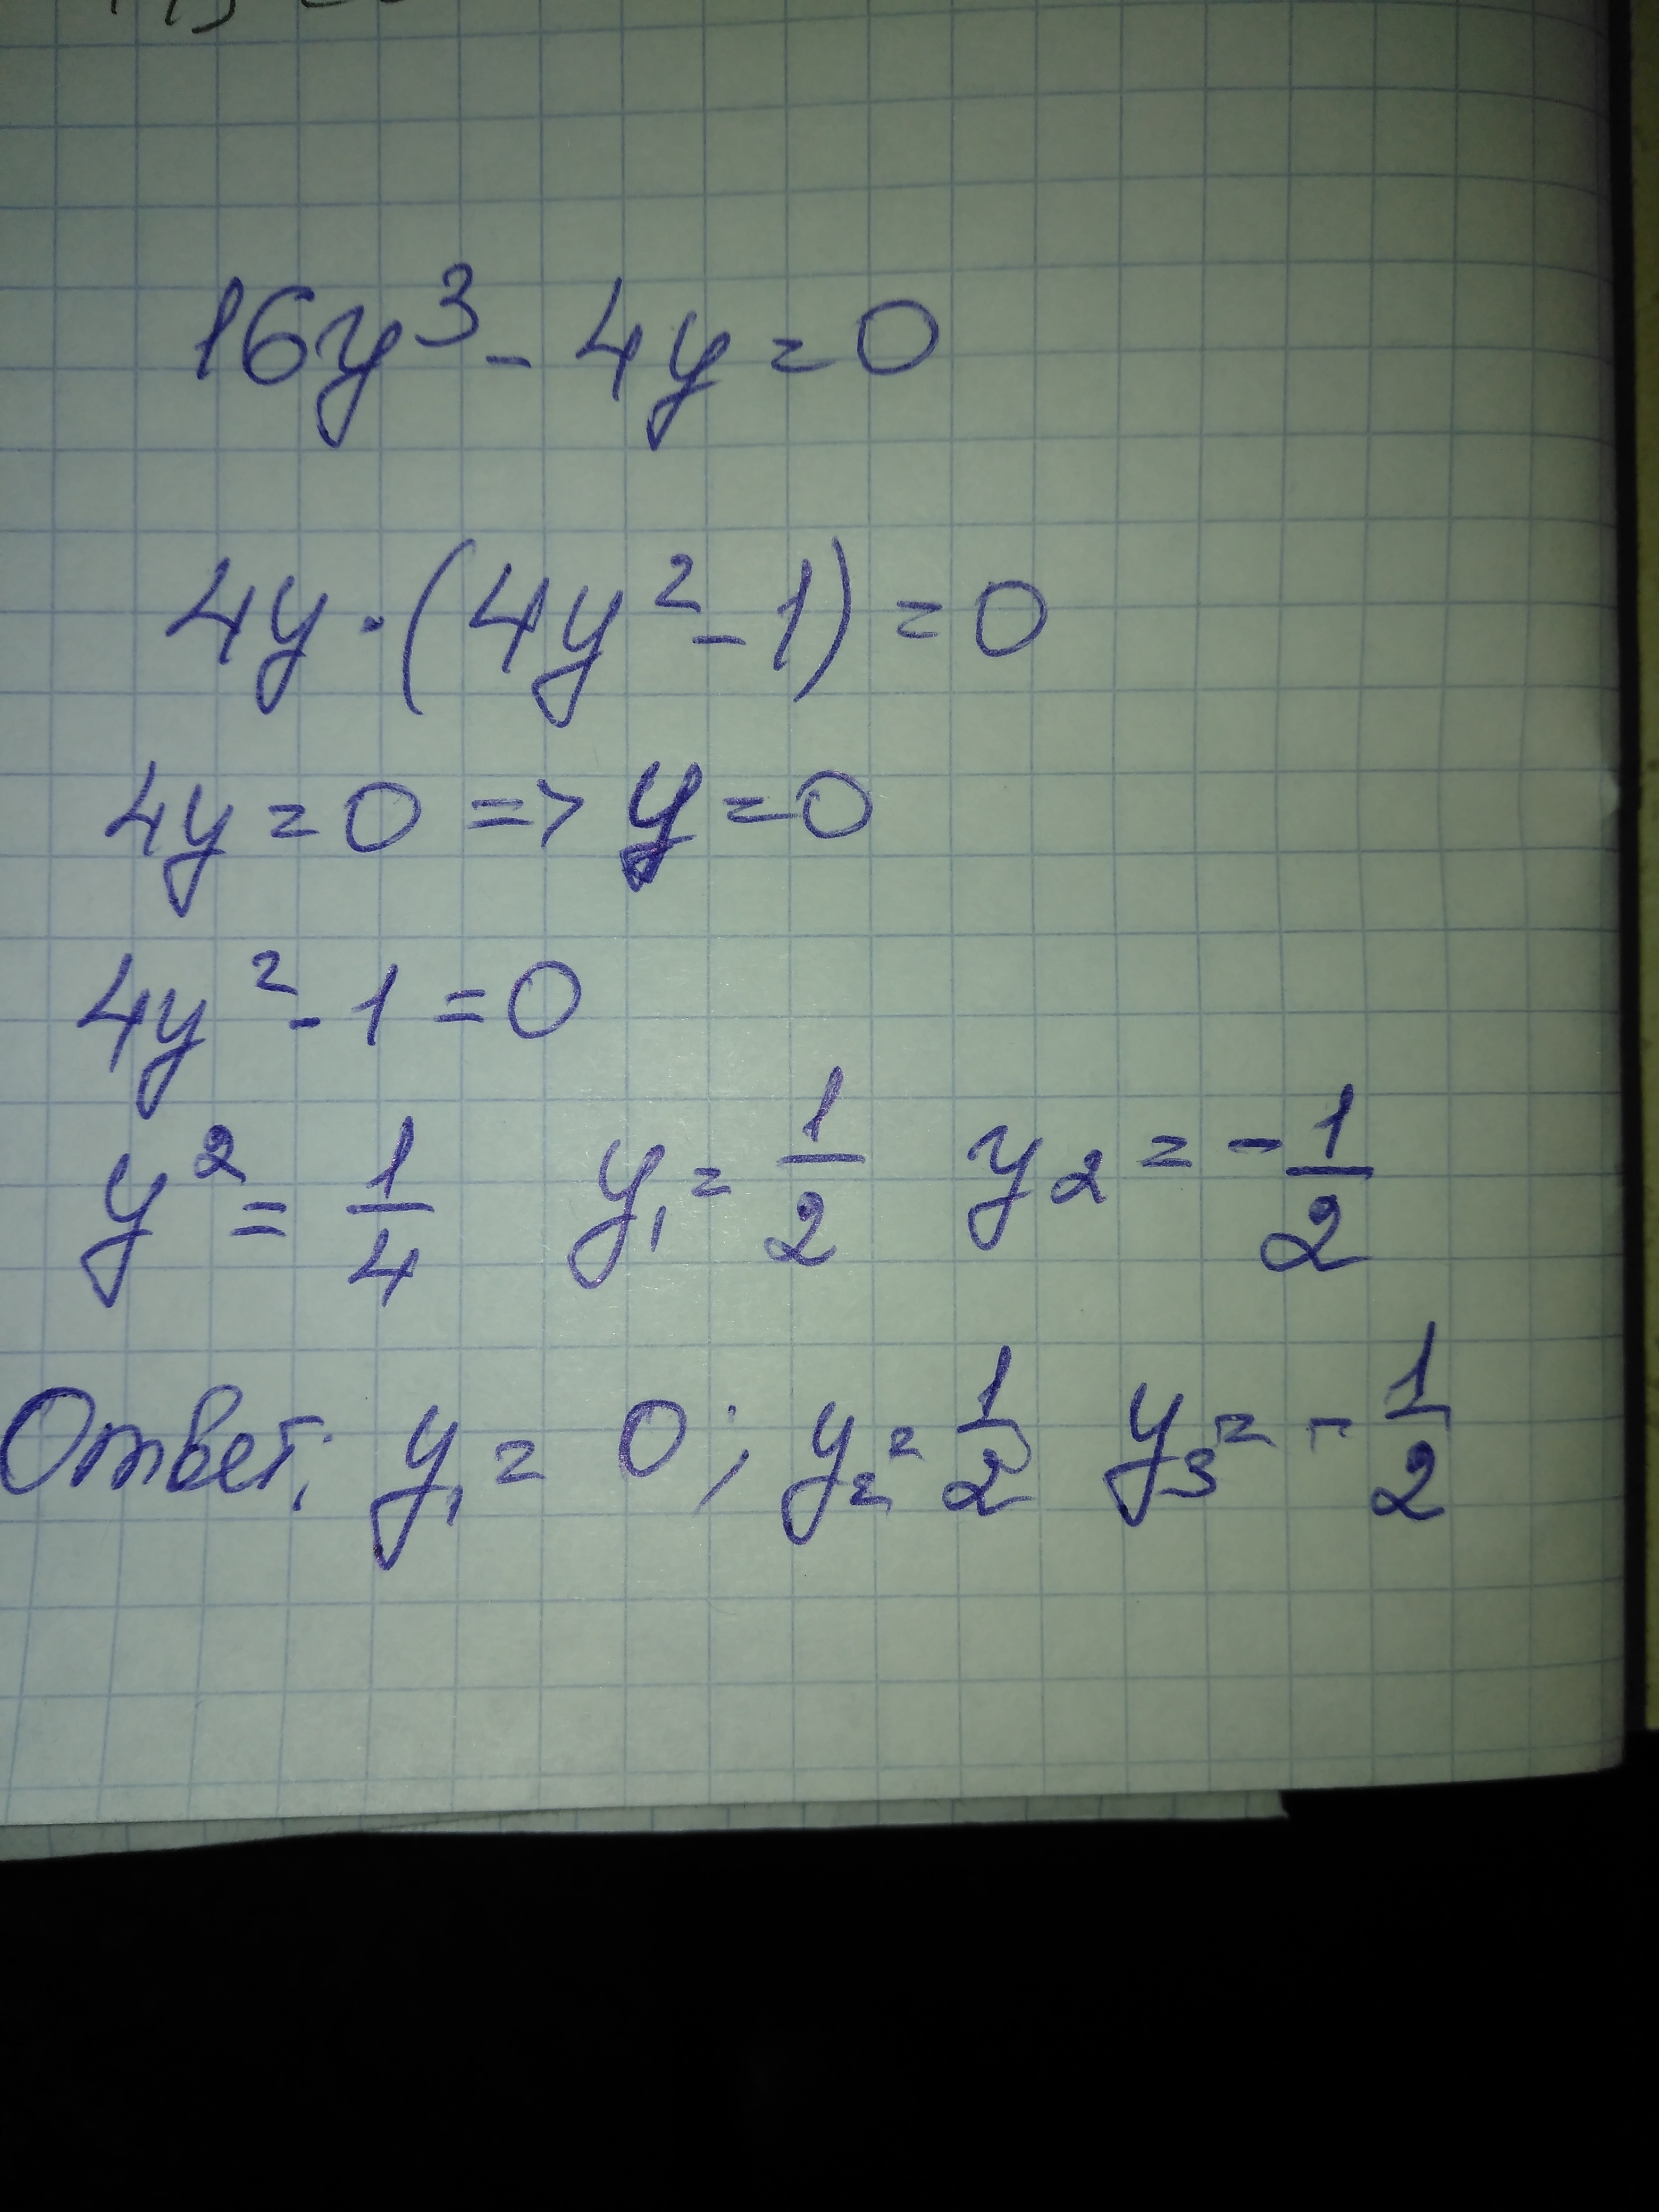 16y³ - 4y = 0
4y · (4y² - 1) = 0
4y = 0 => y = 0
4y² - 1 = 0
y² = 1/4 y₁ = 1/2 y₂ = - 1/2
Ответ: y₁ = 0; y₂ = 1/2 y₃ = - 1/2